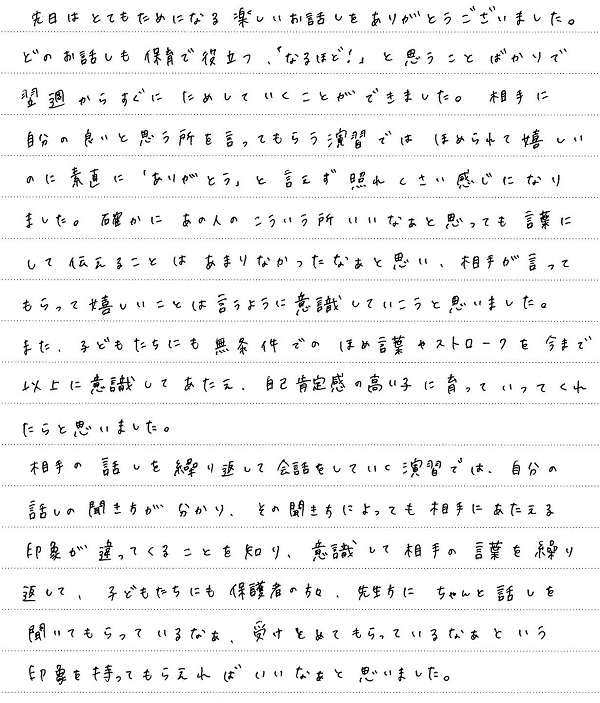 先日はとてもためになる楽しいお話しをありがとうございました。
どのお話しも保育で役立つ、「なるほど!」と思うことばかりで
翌週からすぐにためしていくことができました。相手に
自分の良いと思う所を言ってもらう演習では ほめられて嬉しい
のに素直に「ありがとう」と言えず照れくさい感じになり
ました。確かにあの人のこういう所いいなぁと思っても言葉に
して伝えることはあまりなかったなぁと思い、相手が言って
もらって嬉しいことは言うように意識していこうと思いました。
また、子どもたちにも無条件でのほめ言葉やストロークを今まで
以上に意識してあたえ、自己肯定感の高い子に育っていってくれ
たらと思いました。
相手の話しを繰り返して会話をしていく演習では、自分の
話しの聞き方が分かり、その聞き方によっても相手にあたえる
印象が違ってくることを知り、意識して相手の言葉を繰り
返して、子どもたちにも保護者の方々、先生方にちゃんと話しを
聞いてもらっているなぁ、受けとめてもらっているなぁという
印象を持ってもらえればいいなぁと思いました。